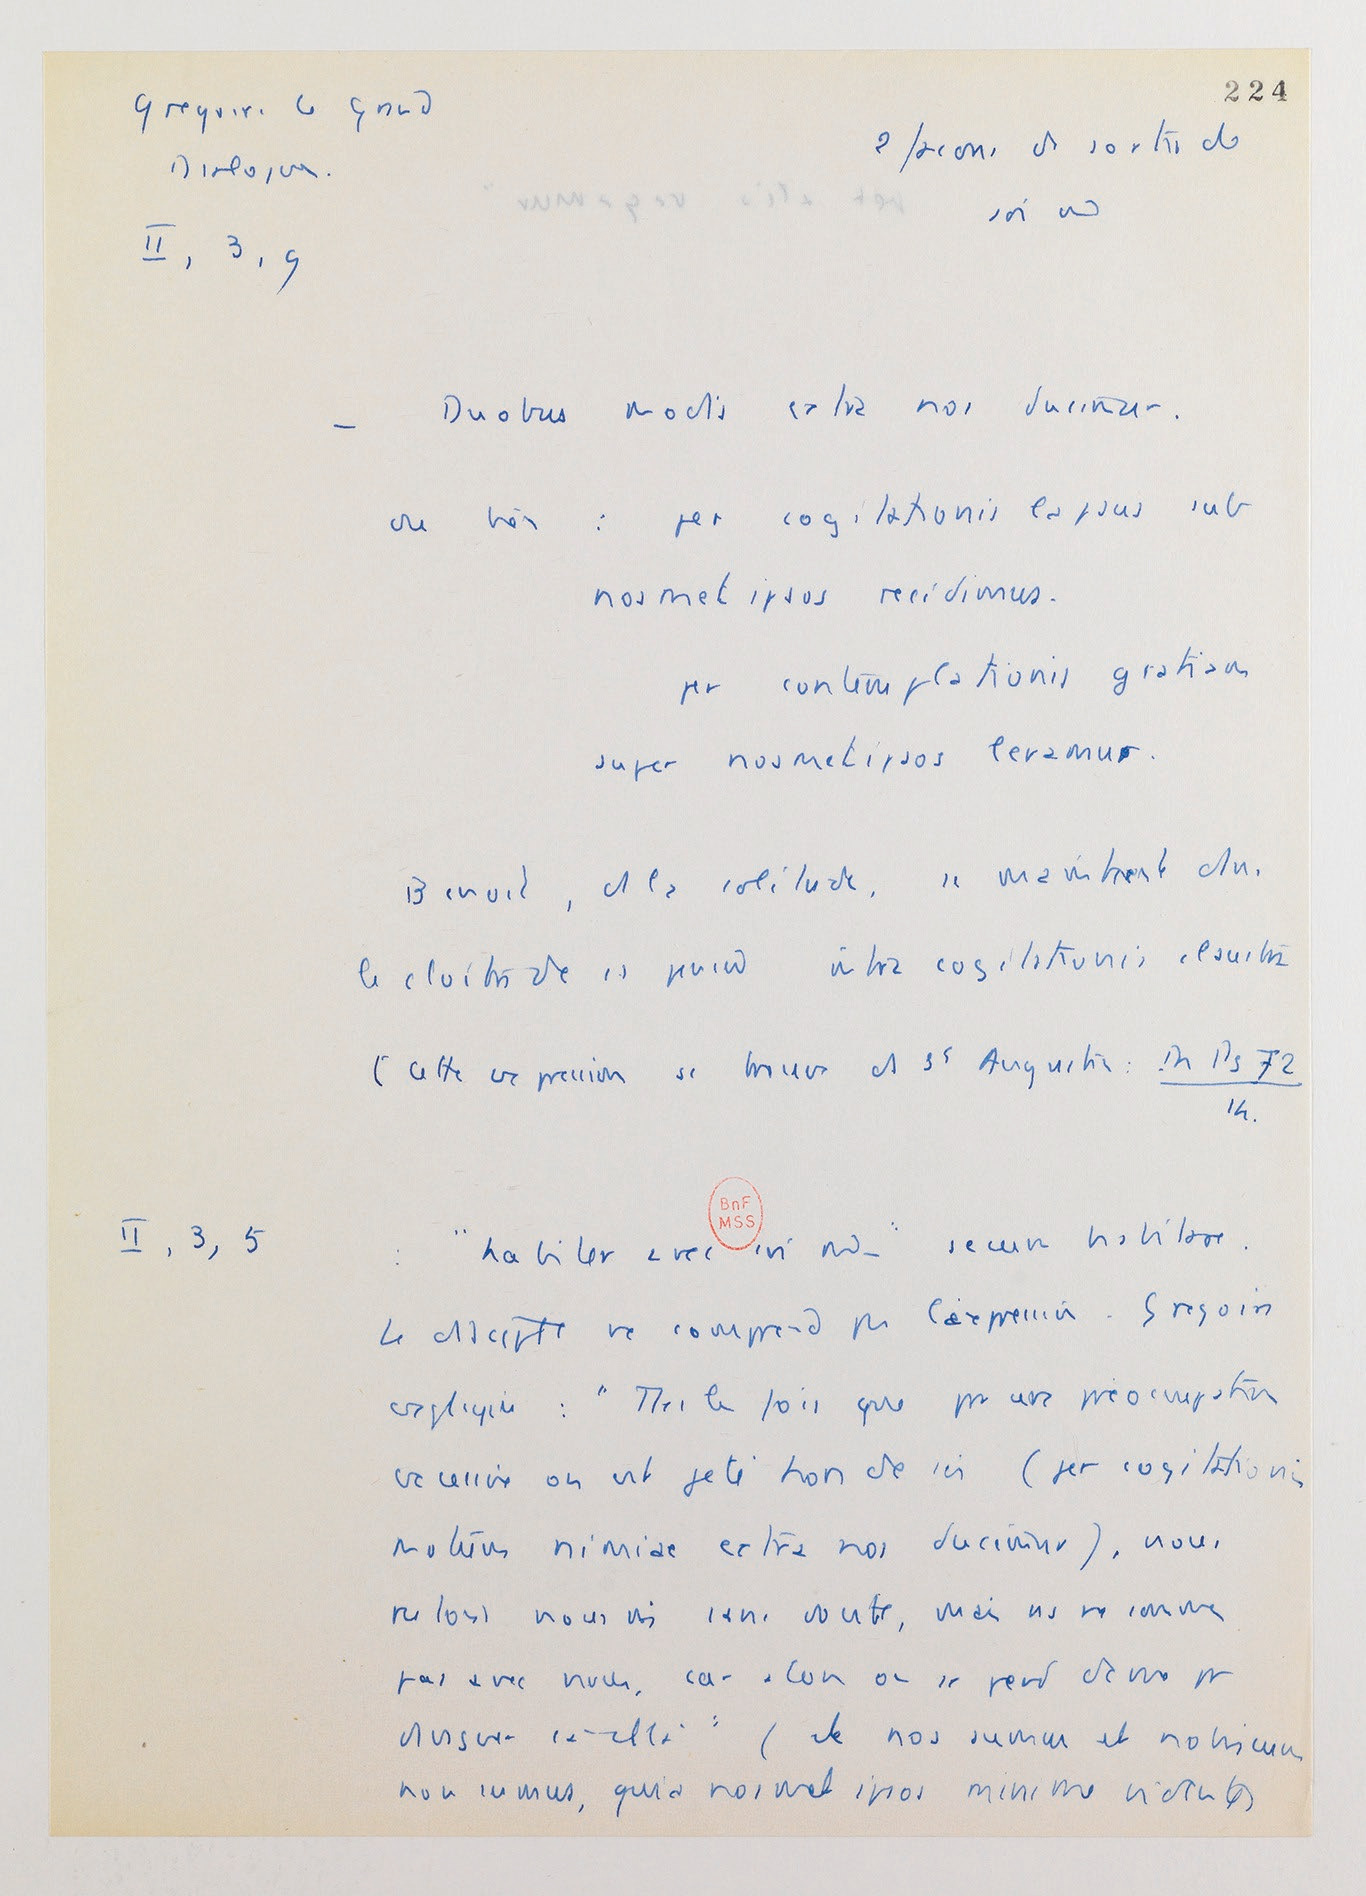 224
Gregoire le Grand
Dialogues.
2 façons de sortir de
soi m̂
II, 3, 9
– Duobus modis extra nos ducimur.
per cogitationis lapsus sub
nosmetipsos recidimus.
per contemplationis gratiam
super nosmetipsos levamur.
Benoit, ds la solitude, se maintient ds
le cloitre de sa pensée intra cogitationis claustra
( Cette expression se trouve ds St Augustin : In Ps 72
14.
BnF
MSS
II, 3, 5 : "habiter avec soi m̂" secum habitare.
Le disciple ne comprend pas l'expression. Gregoire
explique : " Ttes les fois que par une préoccupation
excessive on est jeté hors de soi ( per cogitationis
motum nimiae extra nos ducimur ), nous
restons nous m̂ sans doute, mais ns ne sommes
pas avec nous, car alors on se perd de vue pr
divaguer ailleurs " ( et nos sumus et nobiscum
non sumus, quia nosmetipsos minime videntes